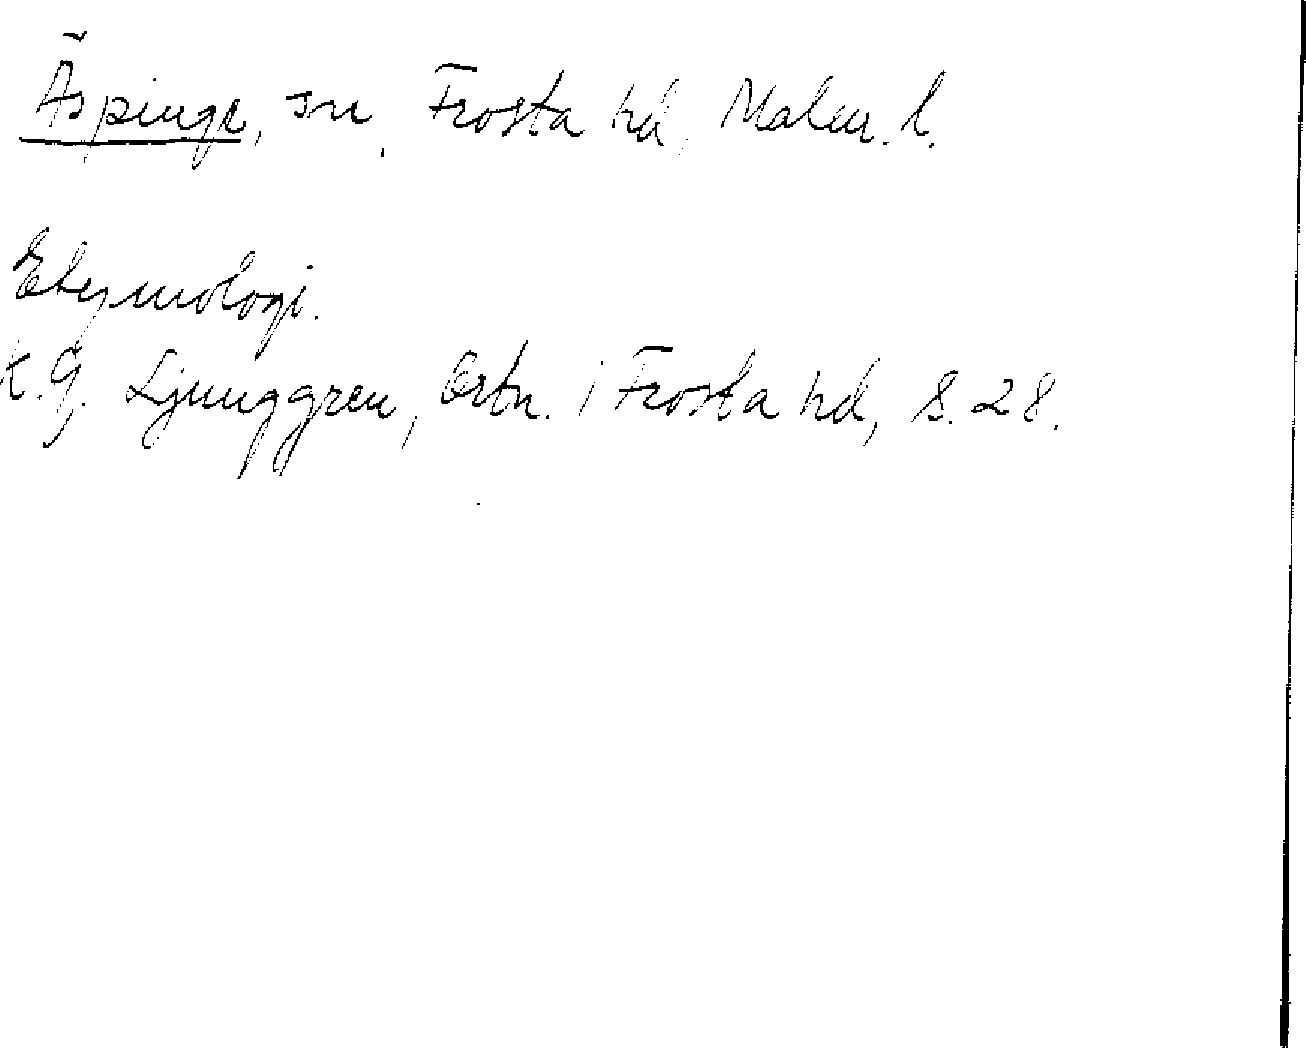 Äspinge, sn, Frosta hd, Malm. l.
Etymologi.
K.G. Ljunggren, Ortn. i Frosta hd, s. 28.